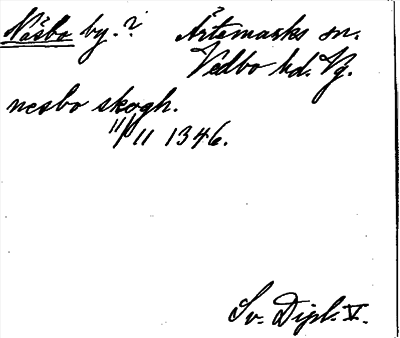 Näsbo by.? Ärtemarks sn.
Vedbo hd. Vg.
nesbo skogh.
11/11 1346.
Sv. Dipl. V.